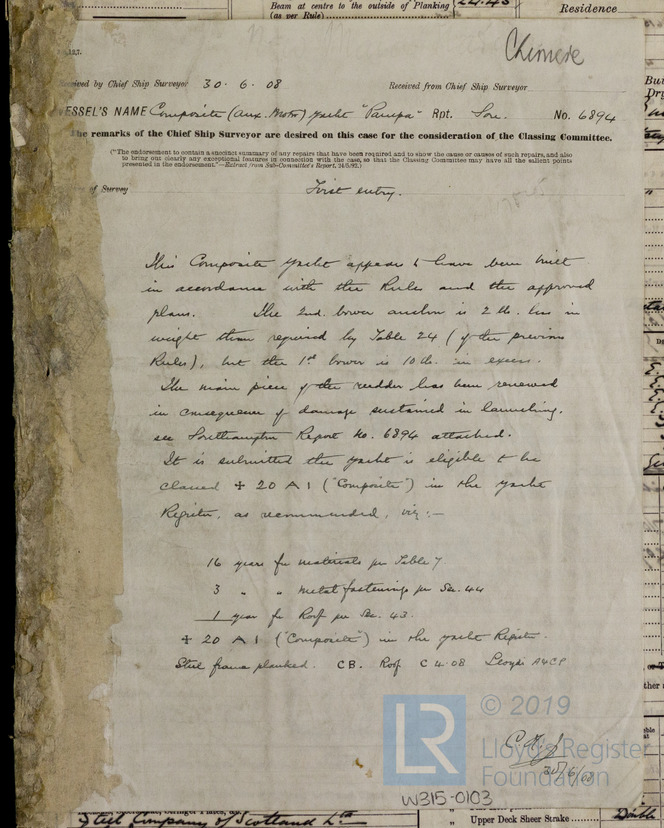 Beam at centre to the outside of Planking
(as per Rule)
Residence
Chimere
Received by Chief Ship Surveyor 30.6.08 Received from Chief Ship Surveyor
VESSEL'S NAME Composite (Aux. Motor) Yacht "Pampa" Rpt. Sou. No. 6894
The remarks of the Chief Ship Surveyor are desired on this case for the consideration of the Classing Committee.
("The endorsement to contain a succinct summary of any repairs that have been required and to show the cause or causes of such repairs, and also
to bring out clearly any exceptional features in connection with the case, so that the Classing Committee may have all the salient points
presented in the endorsement."—Extract from Sub-Committee's Report, 24/5/92.)
of Survey First entry.
This Composite Yacht appears to have been built
in accordance with the Rules and the approved
plans. The 2nd. bower anchor is 2 lb. less in
weight than required by Table 24 (of the previous
Rules), but the 1st bower is 10 lb. in excess.
The main piece of the rudder has been renewed
in consequence of damage sustained in launching.
see Southampton Report No. 6894 attached.
It is submitted the yacht is eligible to be
classed ✠ 20 A 1 ("Composite") in the Yacht
Register, as recommended, viz:-
16 years for materials per Table 7
3 " " metal fastenings per Sec. 44
1 year for Roof per Sec. 43.
✠ 20 A 1 ("Composite") in the Yacht Register.
Steel frame planked. CB. Roof C 4.08 Lloyds A&CP
© 2019
LR
Lloyd's Register
Foundation
30/6/08
W315-0103
Steel Company of Scotland Ltd
" Upper Deck Sheer Strake
Double